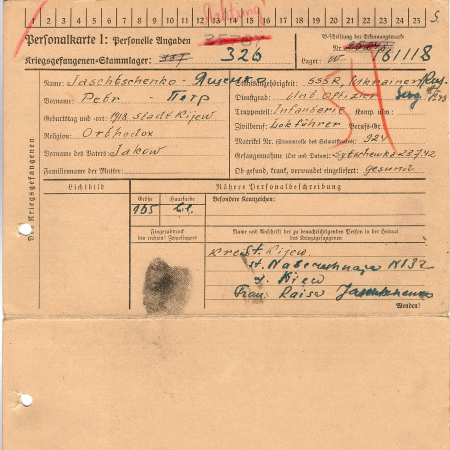 1 2 3 4 5 6 7 8 9 10 11 12 13 14 15 16 17 18 19 20 21 22 23 24 25
Personalkarte I: Personelle Angaben
Beschriftung der Erkennungsmarke
Kriegsgefangenen-Stammlager: 337 326
Nr. 61118
Lager: W
Name: Jaschtschenko - Ященко
Staatsangehörigkeit: SSSR, Ukrainer
Vorname: Petr Петр
Dienstgrad: Unt. Offizier
Geburtstag und -ort: 1918 stadt Kijew
Truppenteil: Infanterie Komp. usw.:
Religion: Orthodox
Zivilberuf: Lokführer Berufs-Gr.:
Vorname des Vaters: Jakow
Matrikel Nr. (Stammrolle des Heimatstaates): 924
Familienname der Mutter:
Gefangennahme (Ort und Datum): 23.7.42
Ob gesund, krank, verwundet eingeliefert: gesund
Des Kriegsgefangenen
Lichtbild
Nähere Personalbeschreibung
Größe Haarfarbe
Besondere Kennzeichen:
165
Fingerabdruck
des rechten Zeigefingers
Name und Anschrift der zu benachrichtigenden Person in der Heimat
des Kriegsgefangenen
St. Kijew
N 132
Kiew
Frau: Raisa
Wenden!